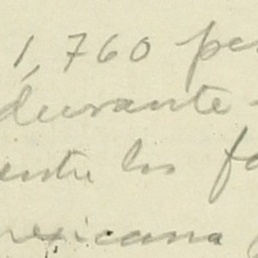 1,760 pe
durante
entre los fa
mexicana